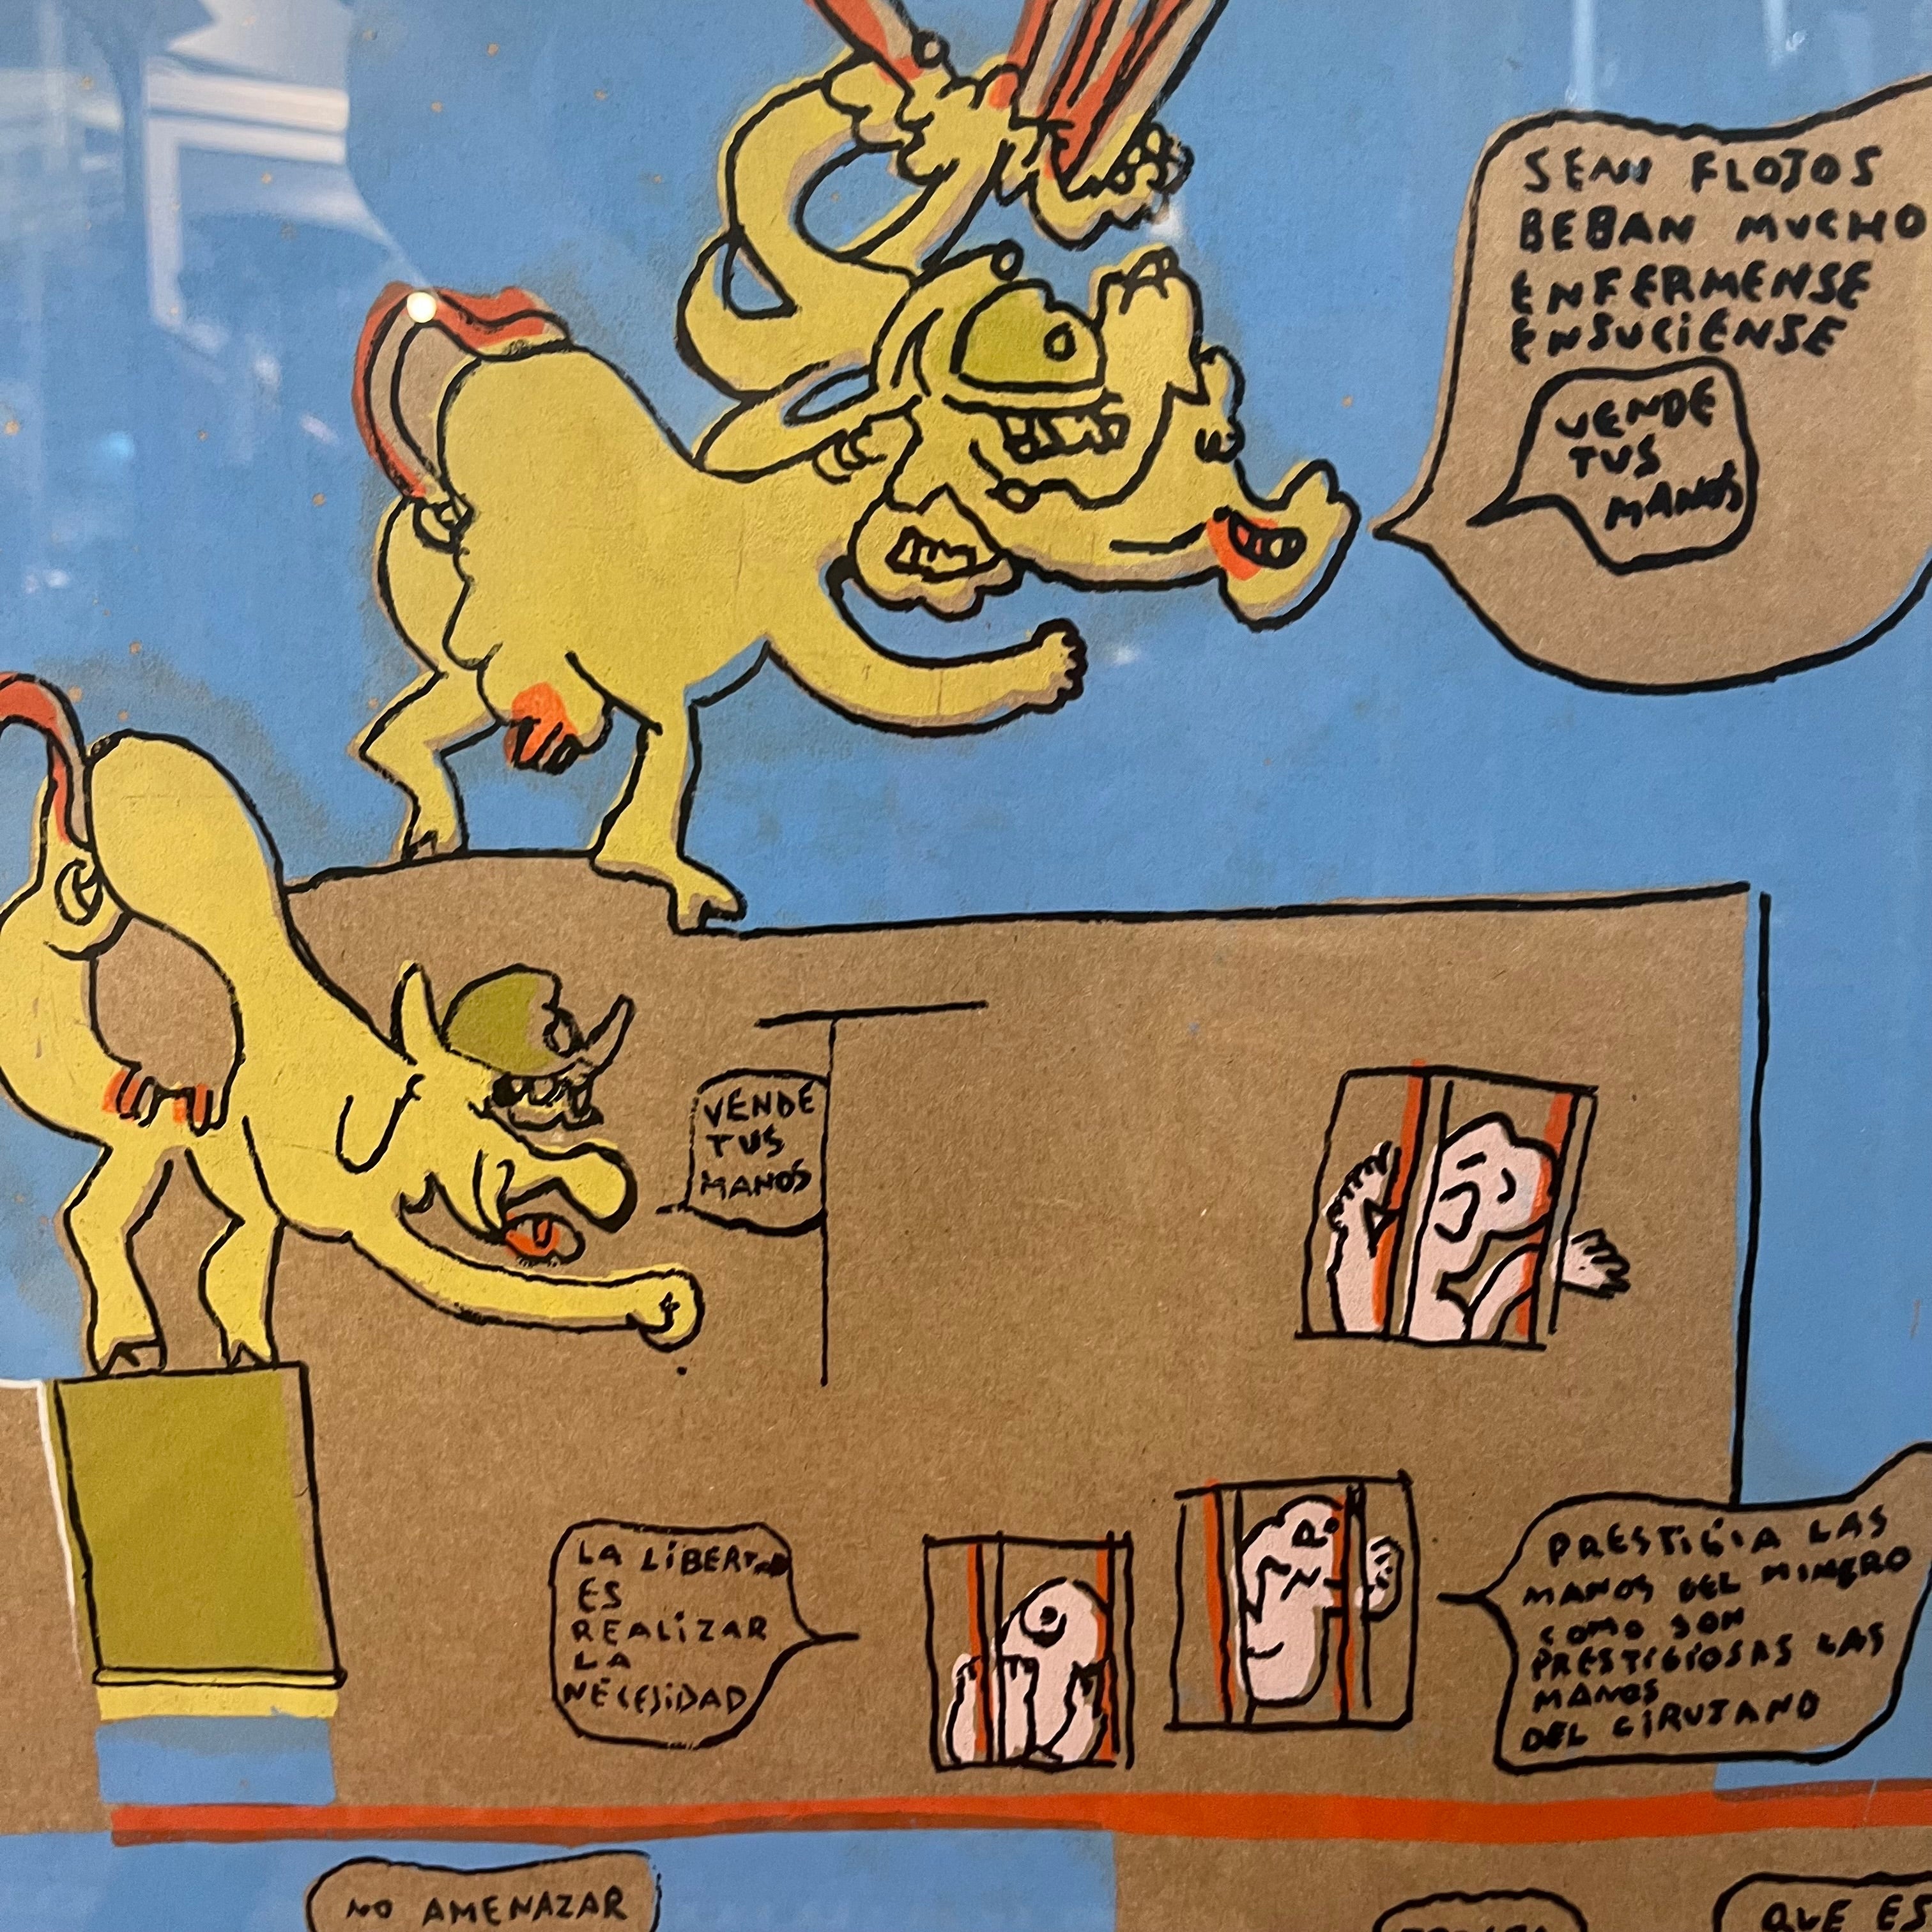 SEAN FLOJOS
BEBAN MUCHO
ENFERMENSE
ENSUCIENSE
VENDE
TUS
MANOS
VENDE
TUS
MANOS
LA LIBERTAD
ES
REALIZAR
LA
NECESIDAD
PRESTIGIA LAS
MANOS DEL MINERO
COMO SON
PRESTIGIOSAS LAS
MANOS
DEL CIRUJANO
NO AMENAZAR
QUE ES